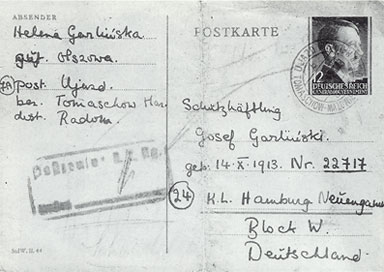 ABSENDER
Helena Garlińska
gut. Olszowa.
7A post Ujazd
bez. Tomaschow Maz
dist. Radom.
POSTKARTE
12
DEUTSCHES REICH
GENERALGOUVERNEMENT
TOMASCHOW
Schutzhäftling
Josef Garliński.
geb. 14.X.1913. Nr. 22717
24 K.L. Hamburg Neuengamme
Block W.
Deutschland.